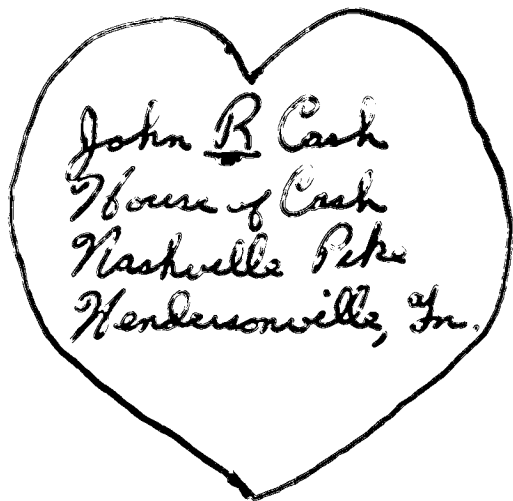 John R Cash
House of Cash
Nashville Pike
Hendersonville, Tn.